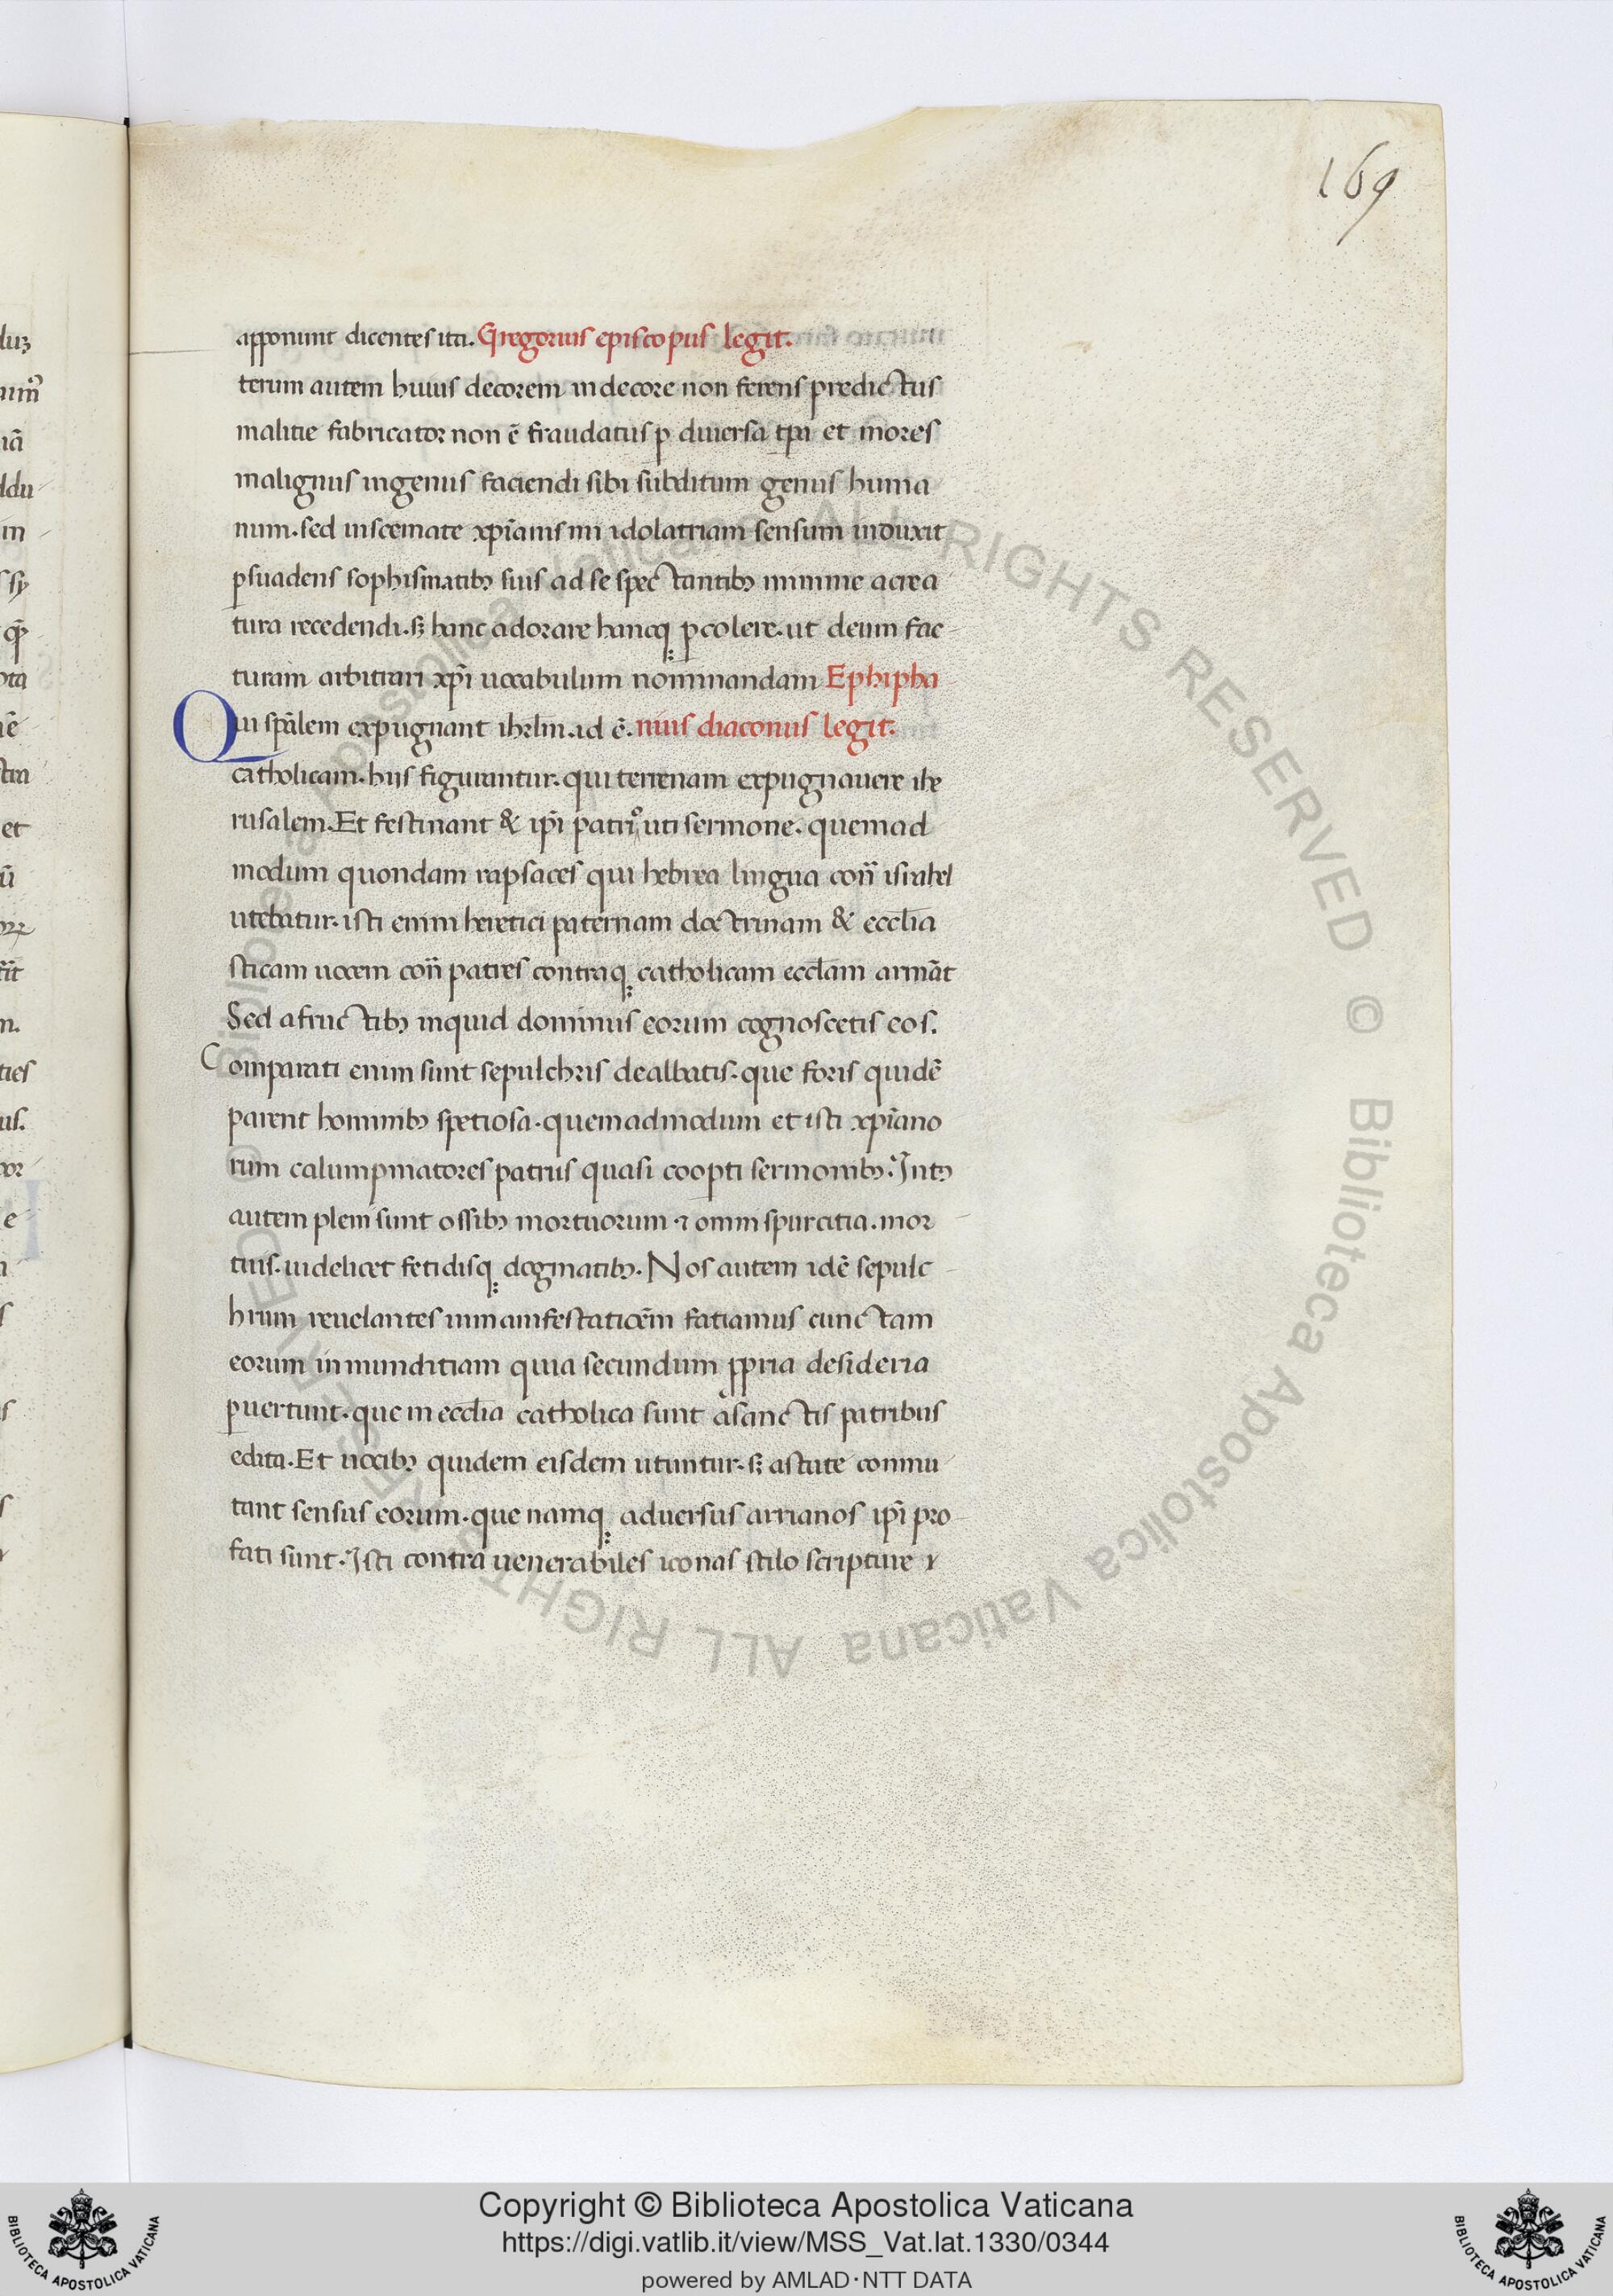 169
apponunt dicentes ita. Gregorius episcopus legit.
terum autem huius decorem indecore non ferens predictus
malitie fabricator non ē fraudatus ꝑ diuersa tp̄a et mores
malignus ingenus faciendi sibi subditum genus huma
num. sed inscemate xp̄ianismi idolatriam sensum induxit
ꝑsuadens sophismatibꝫ suis ad se spectantibꝫ minime acrea
tura recedendi. sꝫ hanc adorare hancqꝫ ꝑcolere. ut deum fac
turam arbitrari xp̄i uocabulum nominandam Ephipha
Qui sp̄alem expugnant ihrlm. id ē. nius diaconus legit.
catholicam. hiis figurantur. qui terrenam expugnauere ihe
rusalem. Et festinant & ip̄i patrio uti sermone. quemad
modum quondam rapsaces qui hebrea lingua con̄ israhel
utebatur. isti enim heretici paternam doctrinam & eccl̄ia
sticam uocem con̄ patres contraqꝫ catholicam eccl̄am armāt
Sed afructibꝫ inquid dominus eorum cognoscetis eos.
Comparati enim sunt sepulchris dealbatis. que foris quidē
parent hominibꝫ spetiosa. quemadmodum et isti xp̄iano
rum calumpniatores patriis quasi coopti sermonibꝫ. Intꝫ
autem pleni sunt ossibꝫ mortuorum ⁊ omni spurcitia. mor
tuis. uidelicet fetidisqꝫ dogmatibꝫ. Nos autem idē sepulc
hrum reuelantes inmanifestatioēm fatiamus cunctam
eorum inmunditiam quia secundum ꝓpria desideria
ꝑuertunt. que in eccl̄ia catholica sunt asanctis patribus
edita. Et uocibꝫ quidem eisdem utuntur. sꝫ astute conmu
tant sensus eorum. que namqꝫ aduersus arrianos ip̄i pro
fati sunt. Isti contra uenerabiles iconas stilo scripture ⁊
Copyright © Biblioteca Apostolica Vaticana
https://digi.vatlib.it/view/MSS_Vat.lat.1330/0344
powered by AMLAD·NTT DATA